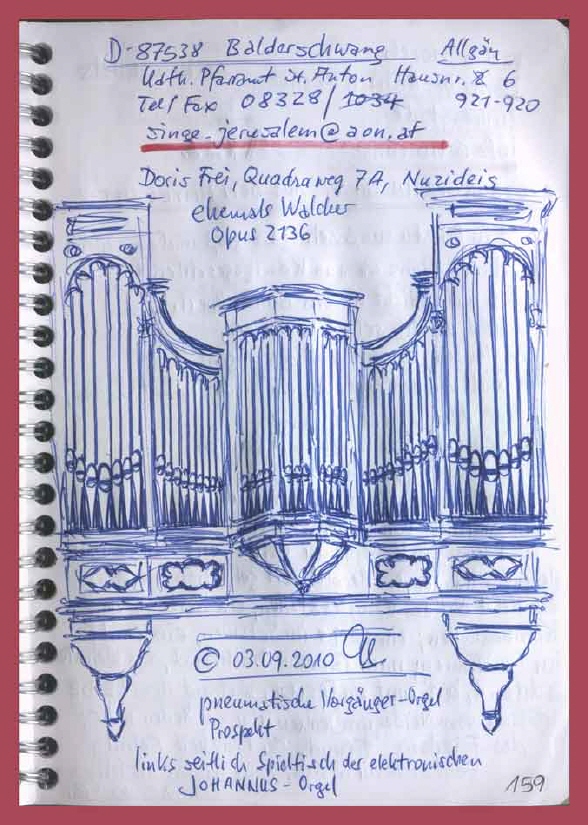 D-87538 Balderschwang Allgäu
Kath. Pfarramt St. Anton Hausnr. 6
Tel/Fax 08328/1034 921-920
singe-jerusalem@aon.at
Doris Frei, Quadraweg 7A, Nuzideis
ehemals Walcker
Opus 2136
© 03.09.2010
pneumatische Vorgänger-Orgel
Prospekt
links seitlich Spieltisch der elektronischen
JOHANNUS-Orgel
159